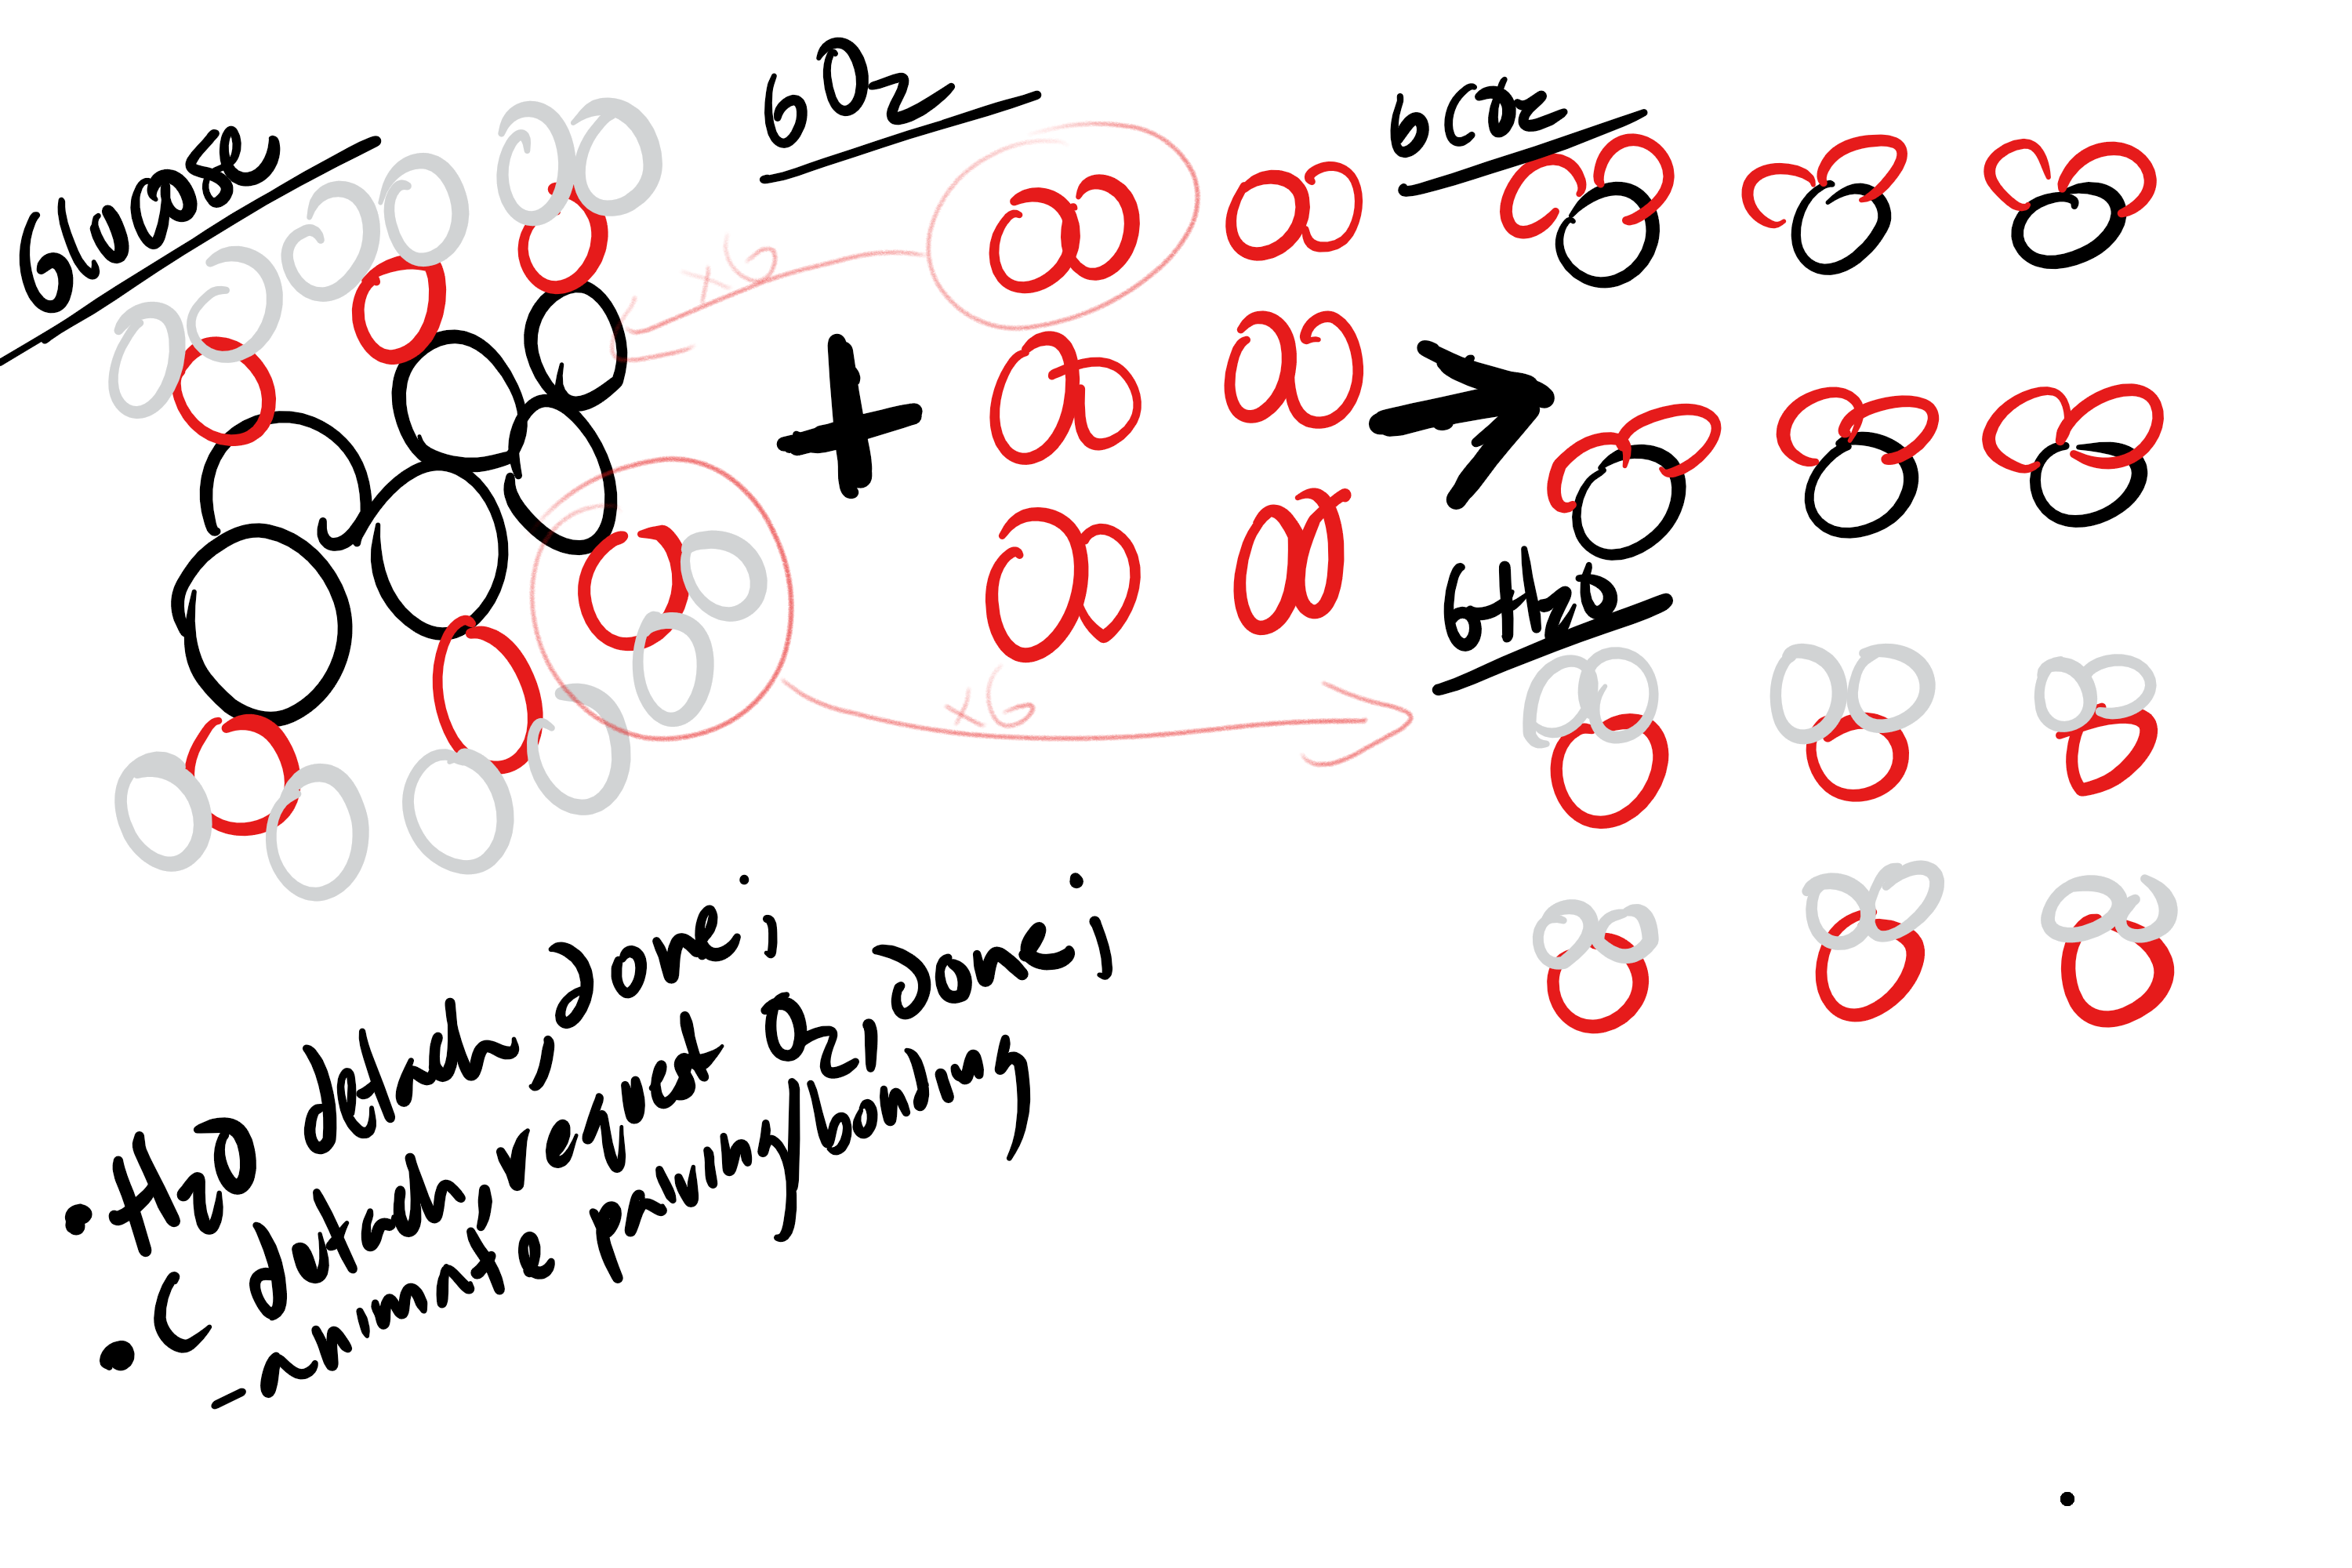 Glucose
6O2
6CO2
x6
+
→
6H2O
x6
• H2O detach, done;
• C detach, request O2, done;
- animate pairing/bonding